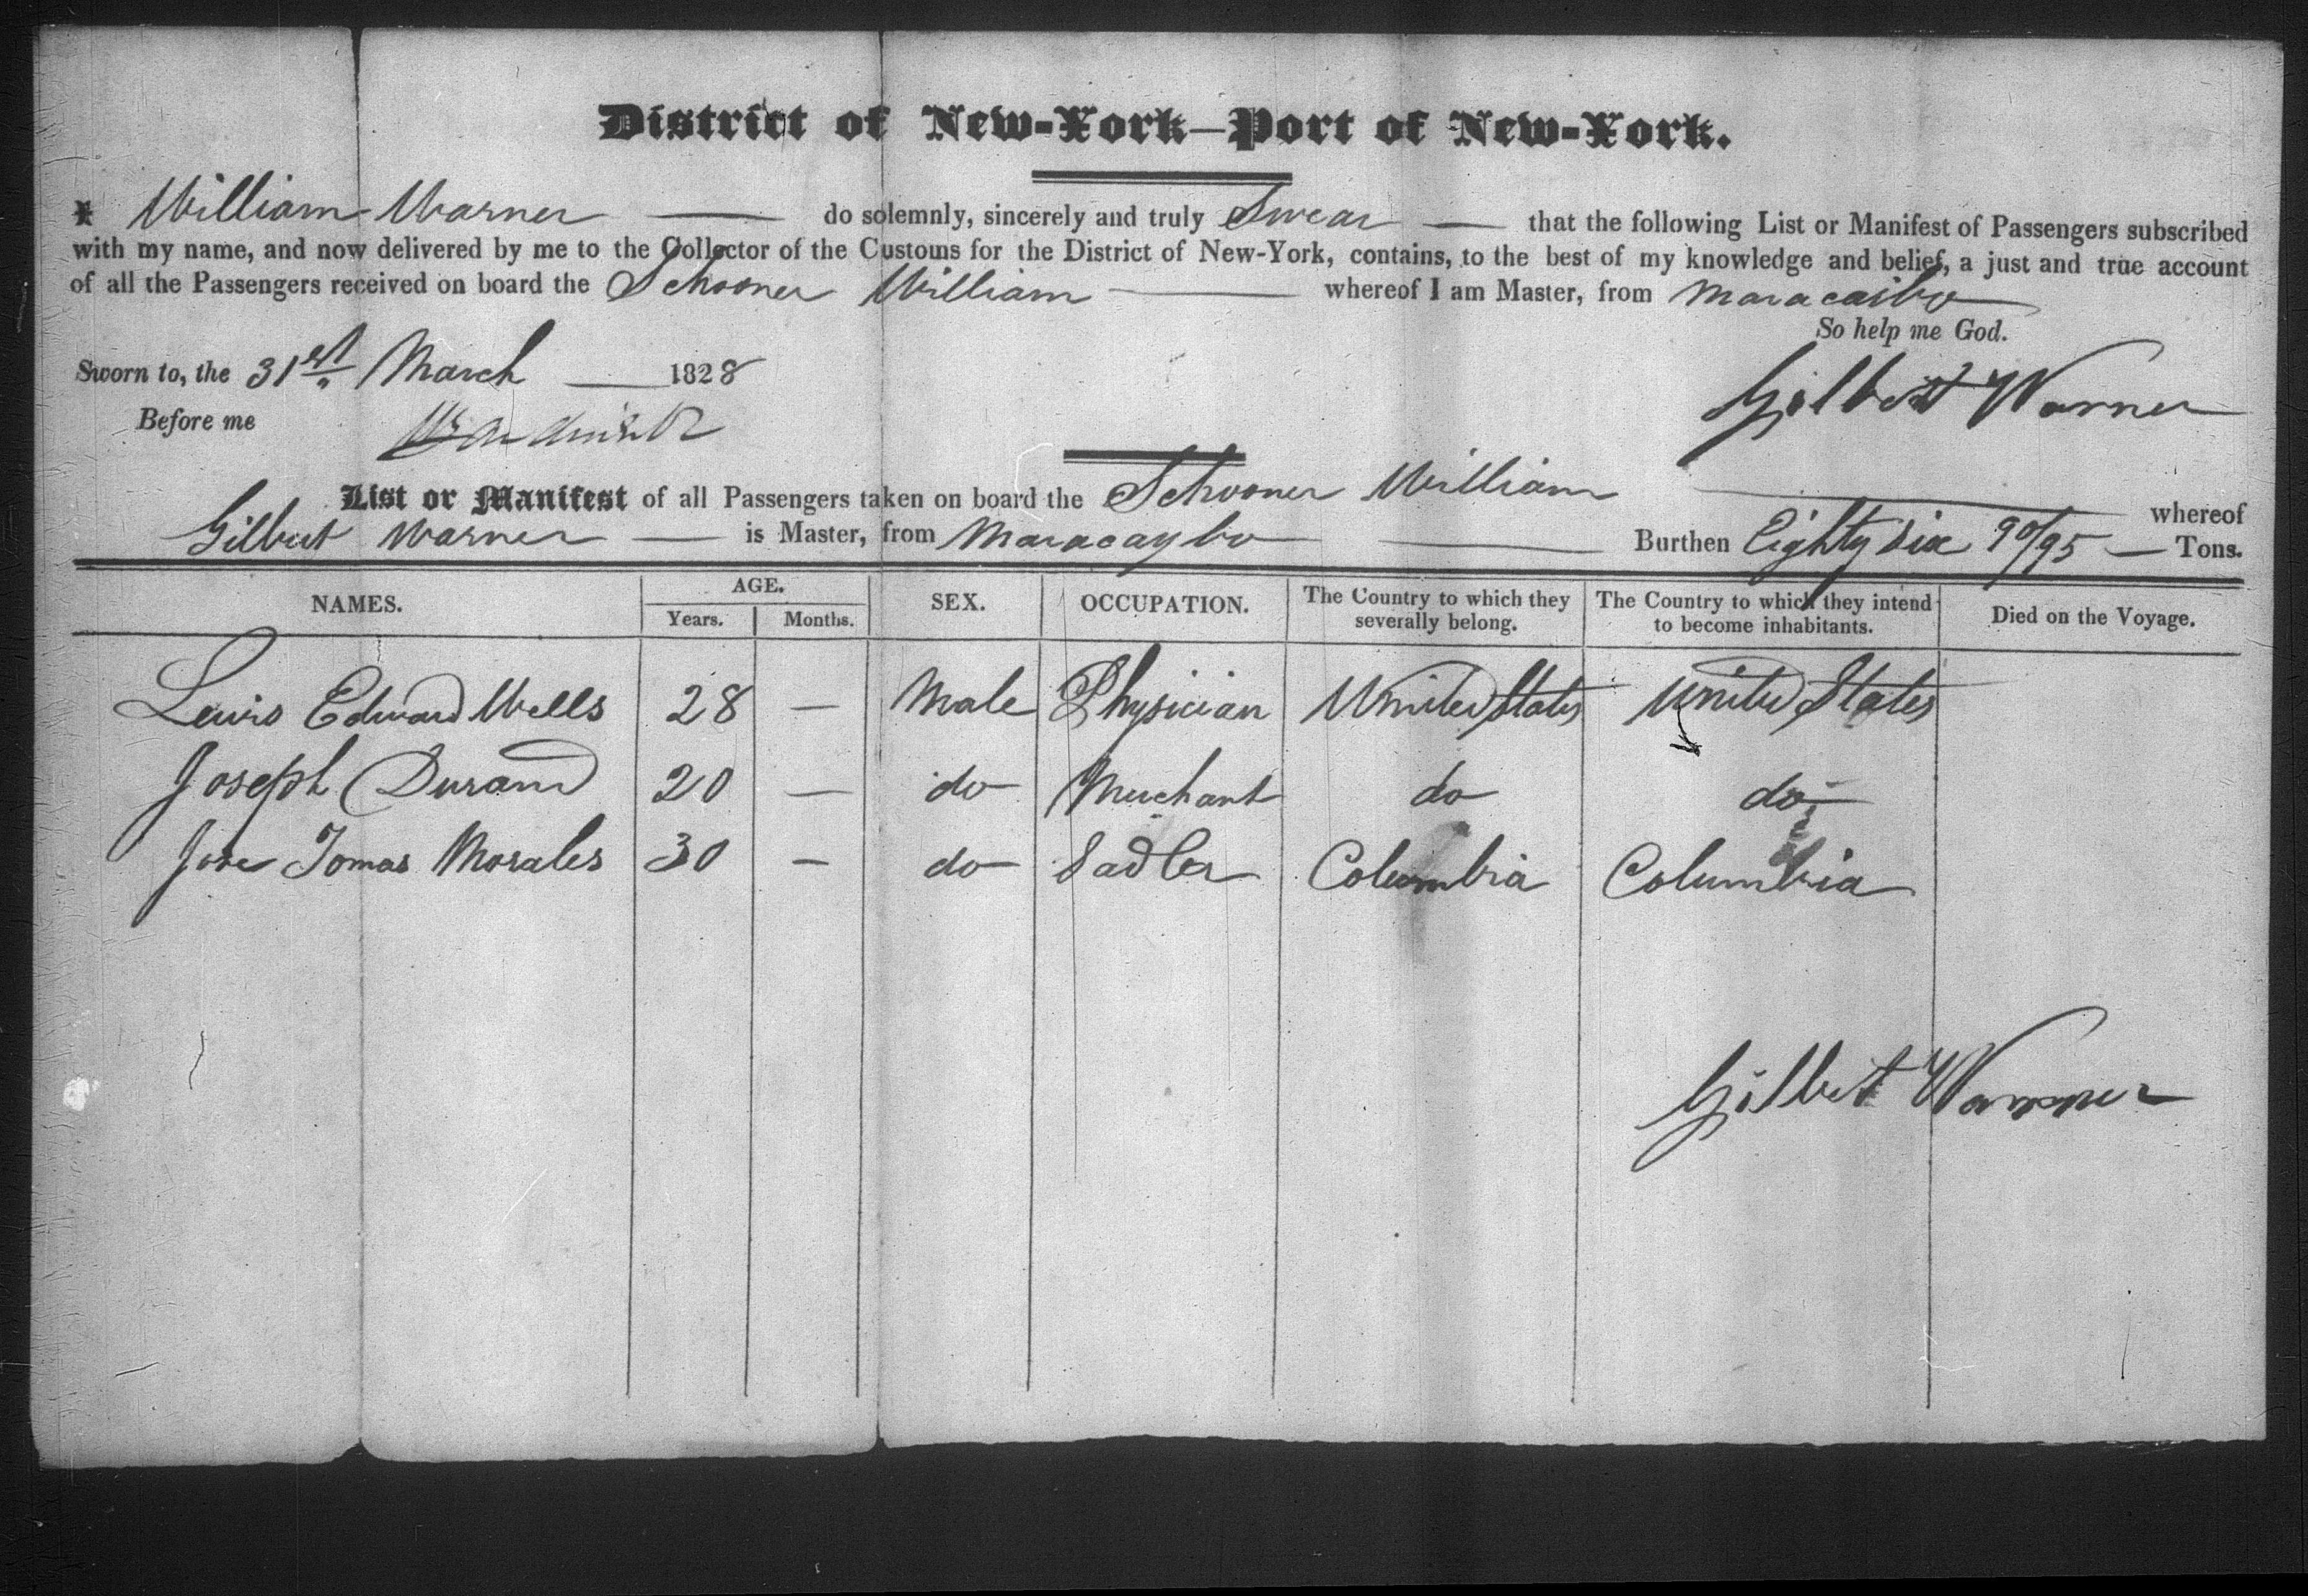 District of New-York—Port of New-York.
I William Warner — do solemnly, sincerely and truly Swear — that the following List or Manifest of Passengers subscribed
with my name, and now delivered by me to the Collector of the Customs for the District of New-York, contains, to the best of my knowledge and belief, a just and true account
of all the Passengers received on board the Schooner William — whereof I am Master, from Maracaibo
So help me God.
Sworn to, the 31st March — 1828
Gilbert Warner
Before me
List or Manifest of all Passengers taken on board the Schooner William — whereof
Gilbert Warner — is Master, from Maracaybo — Burthen Eighty Six 90/95 — Tons.
NAMES. AGE. Years. Months. SEX. OCCUPATION. The Country to which they severally belong. The Country to which they intend to become inhabitants. Died on the Voyage.
Lewis Edward Wells 28 — Male Physician United States United States
Joseph Durand 20 — do Merchant do do
Jose Tomas Morales 30 — do Sadler Columbia Columbia
Gilbert Warner